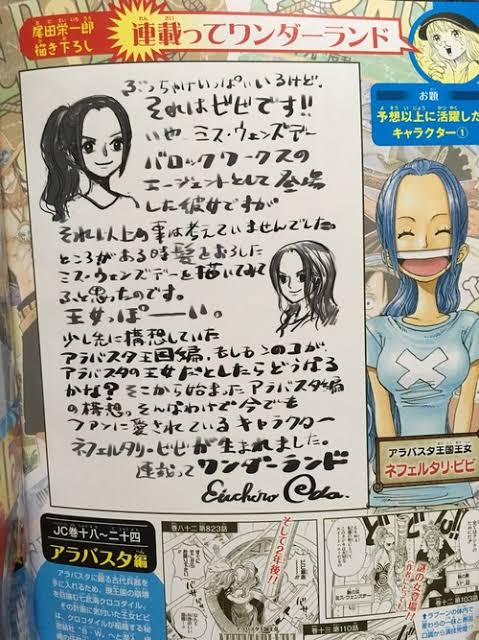 尾田栄一郎
描き下ろし
連載ってワンダーランド
お題
予想以上に活躍した
キャラクター①
ぶっちゃけいっぱいいるけど、
それはビビです!!
いや ミス・ウェンズデー
バロックワークスの
エージェントとして登場
した彼女ですが
それ以上の事は考えていませんでした。
ところがある時髪をおろした
ミス・ウェンズデーを描いてみて
ふと思ったのです。
王女っぽーーい。
少し先に構想していた
アラバスタ王国編、もしもこのコが、
アラバスタの王女だとしたらどうなる
かな？そこから始まったアラバスタ編
の構想。そんなわけで今でも
ファンに愛されているキャラクター
ネフェルタリ・ビビが生まれました。
連載ってワンダーランド
Eiichiro Oda.
アラバスタ王国王女
ネフェルタリ・ビビ
JC巻十八〜二十四
アラバスタ編
アラバスタに眠る古代兵器を
手に入れるため、現王国の崩壊
を目論む七武海クロコダイル。
その計画に気付いた王女ビビ
は、クロコダイルが組織する秘
巻八十二 第823話
そして2年後!!
巻十三 第110話
謎の女登場!!
巻十二 第103話